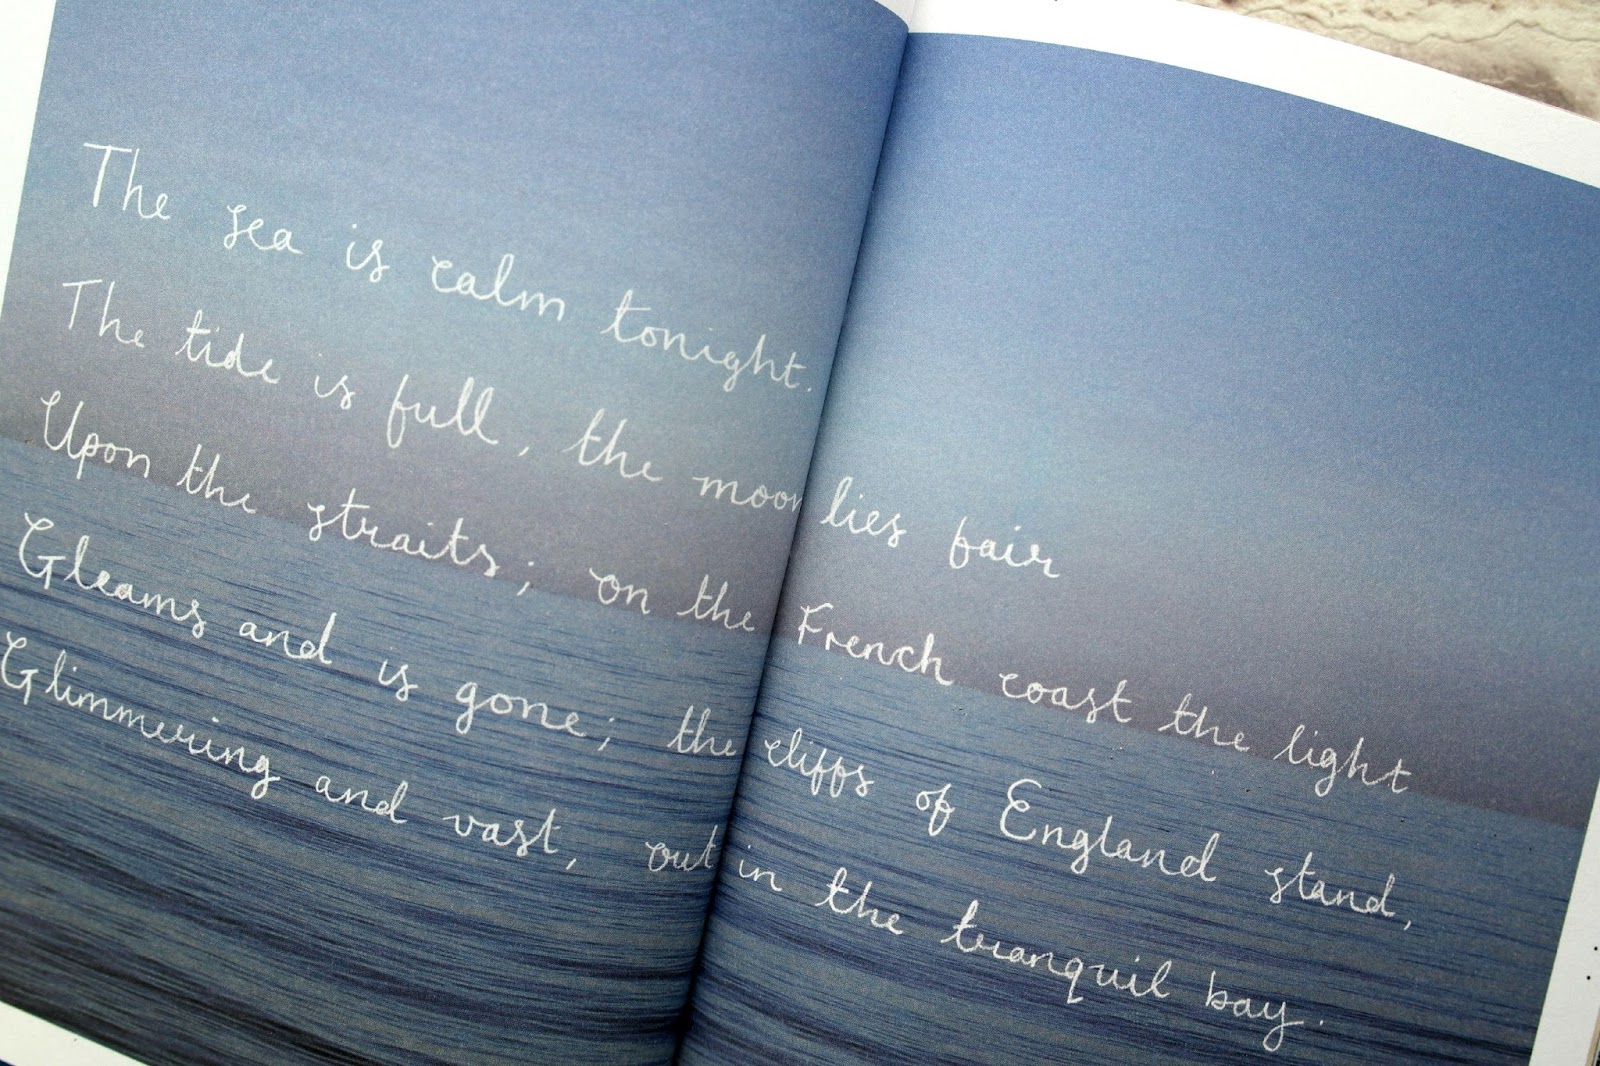 The sea is calm tonight.
The tide is full, the moon lies fair
Upon the straits; on the French coast the light
Gleams and is gone; the cliffs of England stand,
Glimmering and vast, out in the tranquil bay.